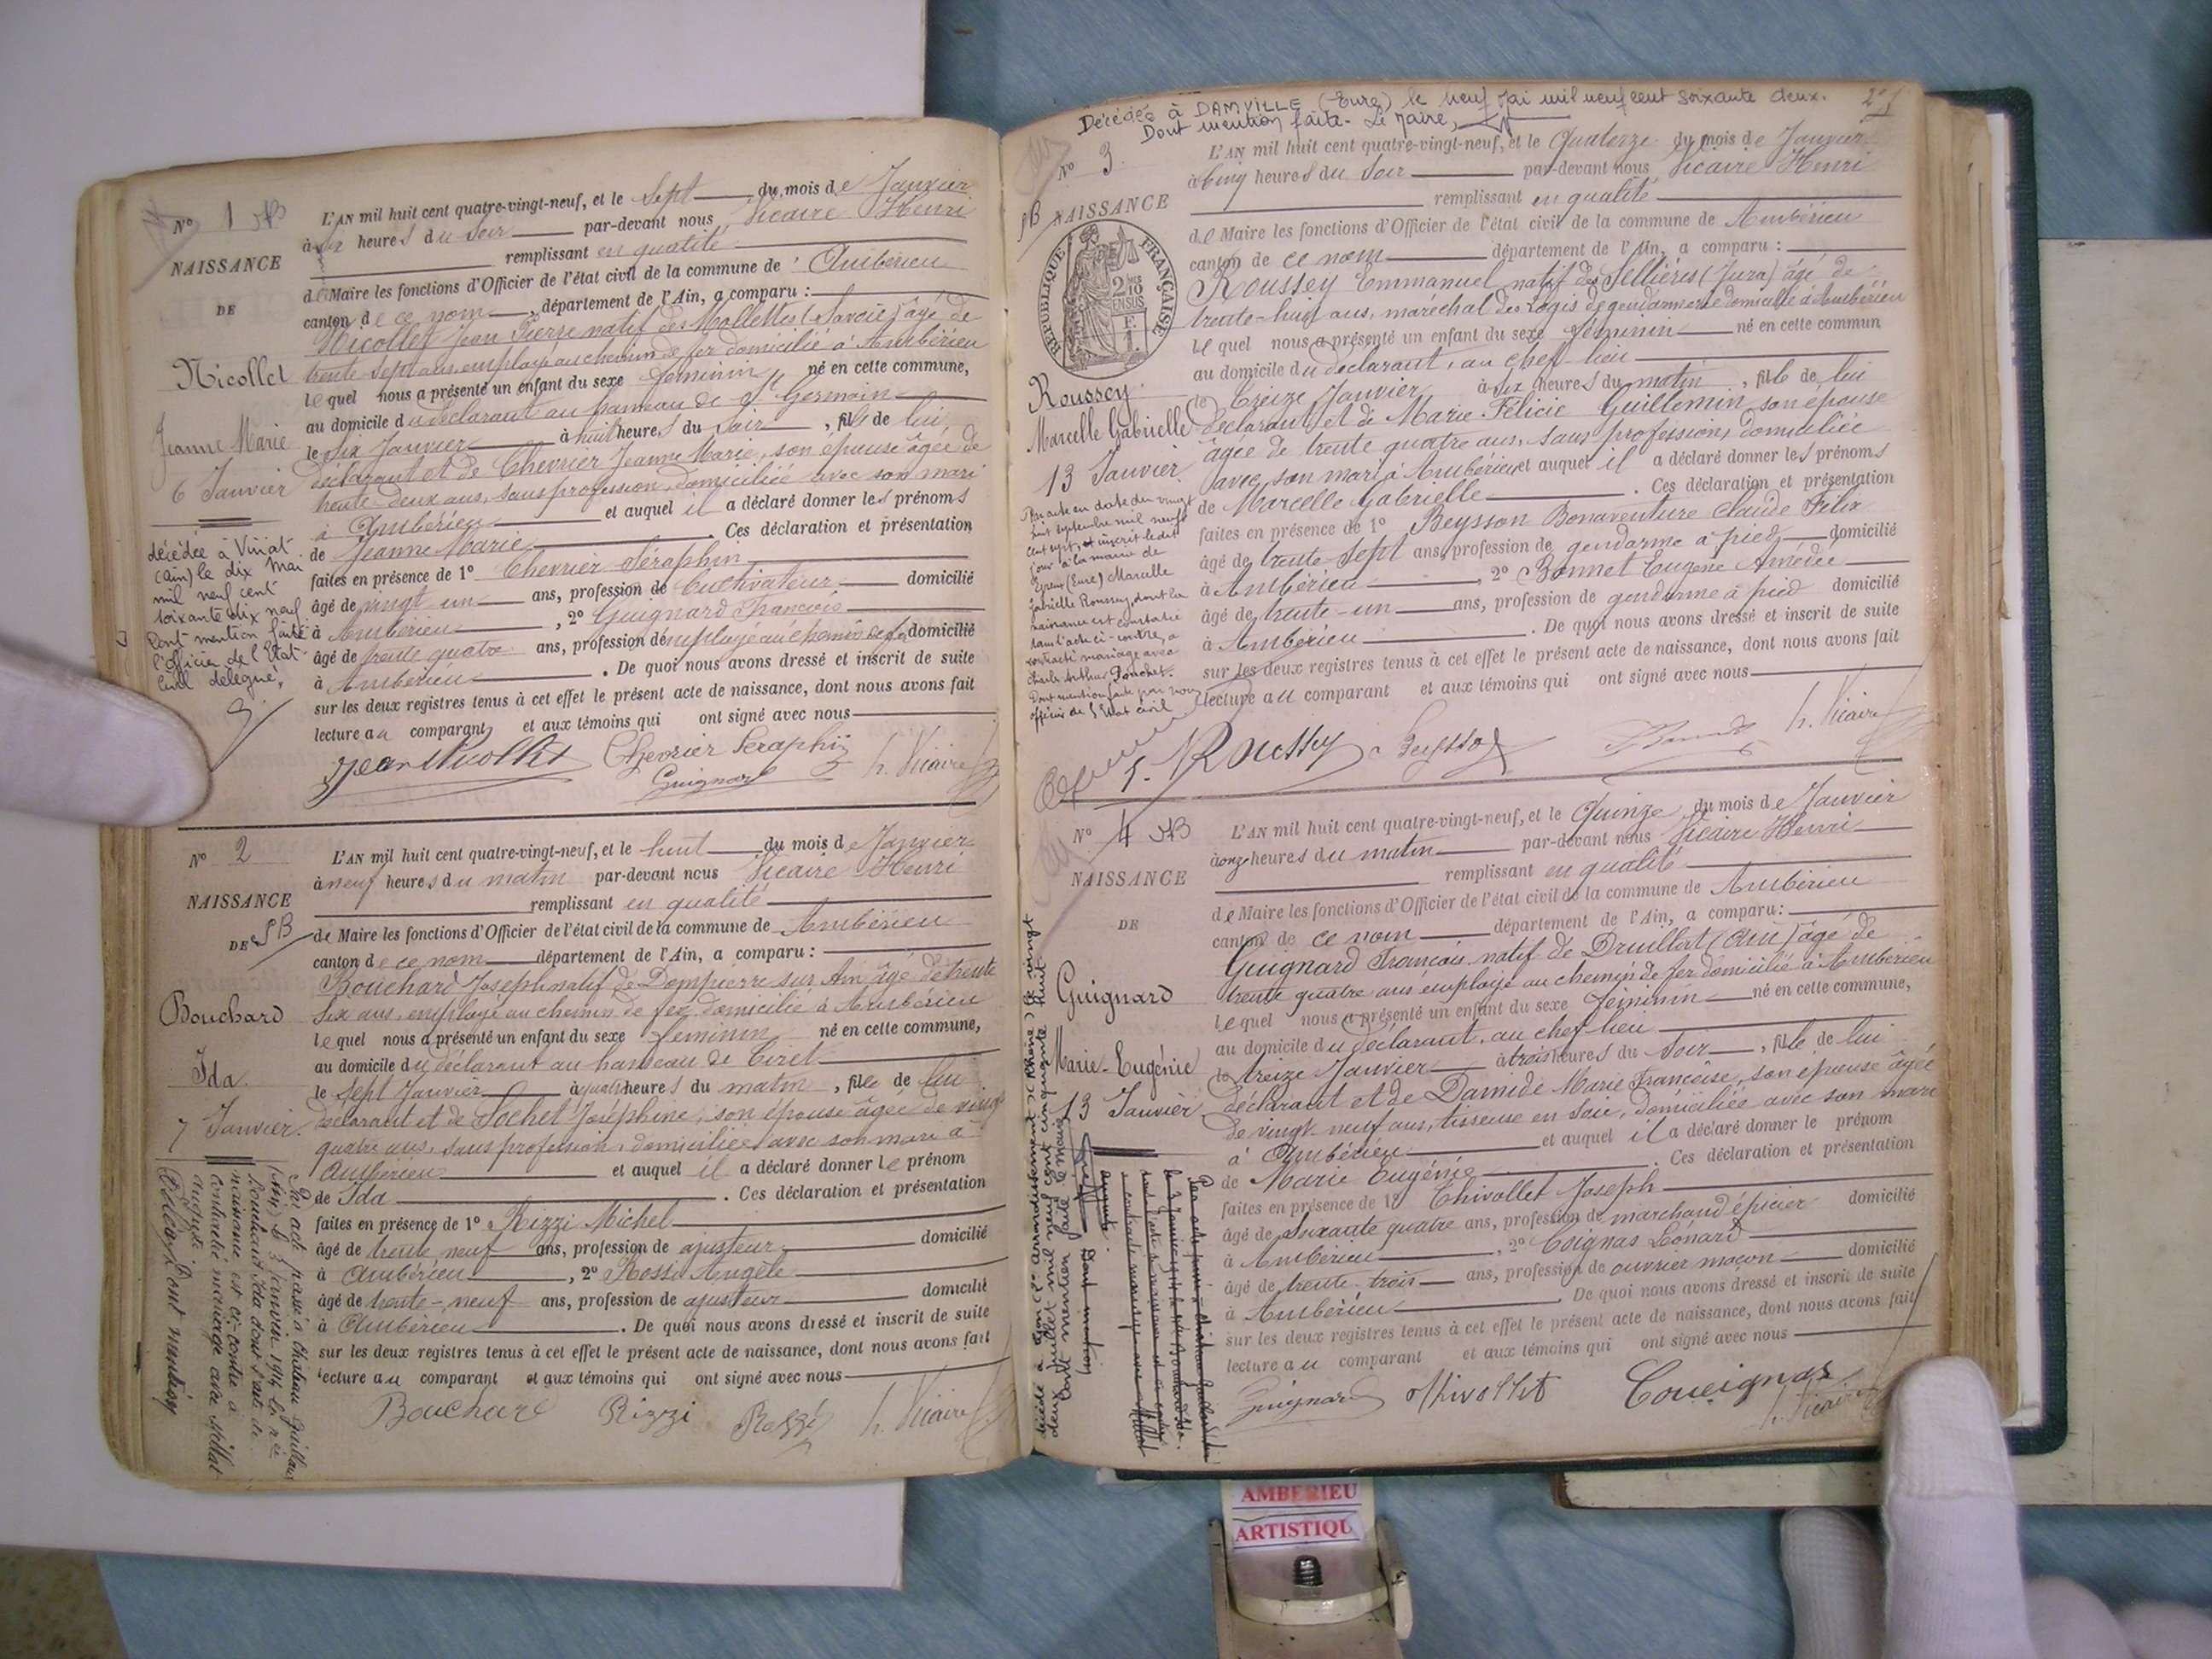 N° 1
NAISSANCE
DE
Nicollet
Jeanne Marie
6 Janvier
décédée à Viriat
(Ain) le dix mai
mil neuf cent
soixante dix neuf
Dont mention faite
l'officier de l'Etat-
Civil délégué,
L'AN mil huit cent quatre-vingt-neuf, et le Sept du mois de Janvier
à six heures du soir par-devant nous Vicaire Henri
remplissant en qualité
de Maire les fonctions d'Officier de l'état civil de la commune de Ambérieu
canton de ce nom, département de l'Ain, a comparu :
Nicollet Jean Pierre natif des Mollettes (Savoie) âgé de
trente sept ans, employé au chemin de fer domicilié à Ambérieu
lequel nous a présenté un enfant du sexe féminin né en cette commune,
au domicile du déclarant au hameau de St Germain
le Six Janvier à huit heures du soir, fille de lui
déclarant et de Chevrier Jeanne Marie, son épouse âgée de
trente deux ans, sans profession, domiciliée avec son mari
à Ambérieu et auquel il a déclaré donner les prénoms
de Jeanne Marie. Ces déclaration et présentation
faites en présence de 1° Chevrier Séraphin
âgé de vingt un ans, profession de Cultivateur domicilié
à Ambérieu, 2° Guignard François
âgé de trente quatre ans, profession d'employé au chemin de fer domicilié
à Ambérieu. De quoi nous avons dressé et inscrit de suite
sur les deux registres tenus à cet effet le présent acte de naissance, dont nous avons fait
lecture au comparant et aux témoins qui ont signé avec nous
Jean Nicollet Chevrier Seraphin
Guignard h. Vicaire
N° 2
NAISSANCE
DE SB
Bouchard
Ida
7 Janvier
Par acte passé à Chateau Gaillard
(Ain) le 3 janvier 1914 la née
Bouchard Ida dont l'acte de
naissance est ci-contre a
contracté mariage avec Millat
Dont mention
L'AN mil huit cent quatre-vingt-neuf, et le huit du mois de Janvier
à neuf heures du matin par-devant nous Vicaire Henri
remplissant en qualité
de Maire les fonctions d'Officier de l'état civil de la commune de Ambérieu
canton de ce nom département de l'Ain, a comparu :
Bouchard Joseph natif de Dompierre sur Ain âgé de trente
six ans, employé au chemin de fer domicilié à Ambérieu
lequel nous a présenté un enfant du sexe féminin né en cette commune,
au domicile du déclarant au hameau de Tiret
le Sept Janvier à quatre heures du matin, fille de lui
déclarant et de Sochet Joséphine, son épouse âgée de vingt
quatre ans, sans profession, domiciliée avec son mari à
Ambérieu et auquel il a déclaré donner le prénom
de Ida. Ces déclaration et présentation
faites en présence de 1° Rizzi Michel
âgé de trente neuf ans, profession de ajusteur domicilié
à Ambérieu, 2° Rossi Angèle
âgé de trente-neuf ans, profession de ajusteur domicilié
à Ambérieu. De quoi nous avons dressé et inscrit de suite
sur les deux registres tenus à cet effet le présent acte de naissance, dont nous avons fait
lecture au comparant et aux témoins qui ont signé avec nous
Bouchard Rizzi Rossi h. Vicaire
Décédée à DAMVILLE (Eure) le neuf Mai mil neuf cent soixante deux.
Dont mention faite - Le Maire,
N° 3
SB NAISSANCE
RÉPUBLIQUE FRANÇAISE
2 10 EN SUS
F. 1.
Roussey
Marcelle Gabrielle
13 Janvier
Par acte en date du vingt
huit septembre mil neuf
cent sept, et inscrit le dit
jour à la mairie de
Evreux (Eure) Marcelle
Gabrielle Roussey, dont la
naissance est constatée
dans l'acte ci-contre, a
contracté mariage avec
Charles Arthur Ponchet.
Dont mention faite par nous
officier de l'Etat civil
L'AN mil huit cent quatre-vingt-neuf, et le Quatorze du mois de Janvier
à cinq heures du soir par-devant nous Vicaire Henri
remplissant en qualité
de Maire les fonctions d'Officier de l'état civil de la commune de Ambérieu
canton de ce nom département de l'Ain, a comparu :
Roussey Emmanuel natif de Sellières (Jura) âgé de
trente-huit ans, maréchal des Logis de gendarmerie domicilié à Ambérieu
lequel nous a présenté un enfant du sexe féminin né en cette commun
au domicile du déclarant, au chef-lieu
le Treize Janvier à six heures du matin, fille de lui
déclarant et de Marie Félicie Guillemin son épouse
âgée de trente quatre ans, sans profession, domiciliée
avec son mari à Ambérieu et auquel il a déclaré donner les prénoms
de Marcelle Gabrielle. Ces déclaration et présentation
faites en présence de 1° Beysson Bonaventure Claude Félix
âgé de trente sept ans, profession de gendarme à pied domicilié
à Ambérieu, 2° Bonnet Eugène Amédée
âgé de trente-un ans, profession de gendarme à pied domicilié
à Ambérieu. De quoi nous avons dressé et inscrit de suite
sur les deux registres tenus à cet effet le présent acte de naissance, dont nous avons fait
lecture au comparant et aux témoins qui ont signé avec nous
E. Roussey Beysson h. Vicaire
N° 4
NAISSANCE
DE
Guignard
Marie-Eugénie
13 Janvier
L'AN mil huit cent quatre-vingt-neuf, et le Quinze du mois de Janvier
à onze heures du matin par-devant nous Vicaire Henri
remplissant en qualité
de Maire les fonctions d'Officier de l'état civil de la commune de Ambérieu
canton de ce nom département de l'Ain, a comparu :
Guignard François natif de Druillat (Ain) âgé de
trente quatre ans employé au chemin de fer domicilié à Ambérieu
lequel nous a présenté un enfant du sexe féminin né en cette commune,
au domicile du déclarant, au chef lieu
le treize Janvier à trois heures du soir, fille de lui
déclarant et de Damide Marie Françoise, son épouse âgée
de vingt-neuf ans, tisseuse en soie, domiciliée avec son mari
à Ambérieu et auquel il a déclaré donner le prénom
de Marie Eugénie. Ces déclaration et présentation
faites en présence de 1° Chivollet Joseph
âgé de Soixante quatre ans, profession de marchand épicier domicilié
à Ambérieu, 2° Coignas Léonard
âgé de trente-trois ans, profession de ouvrier maçon domicilié
à Ambérieu. De quoi nous avons dressé et inscrit de suite
sur les deux registres tenus à cet effet le présent acte de naissance, dont nous avons fait
lecture au comparant et aux témoins qui ont signé avec nous
Guignard Chivollet Coueignas
h. Vicaire
AMBERIEU
ARTISTIQU